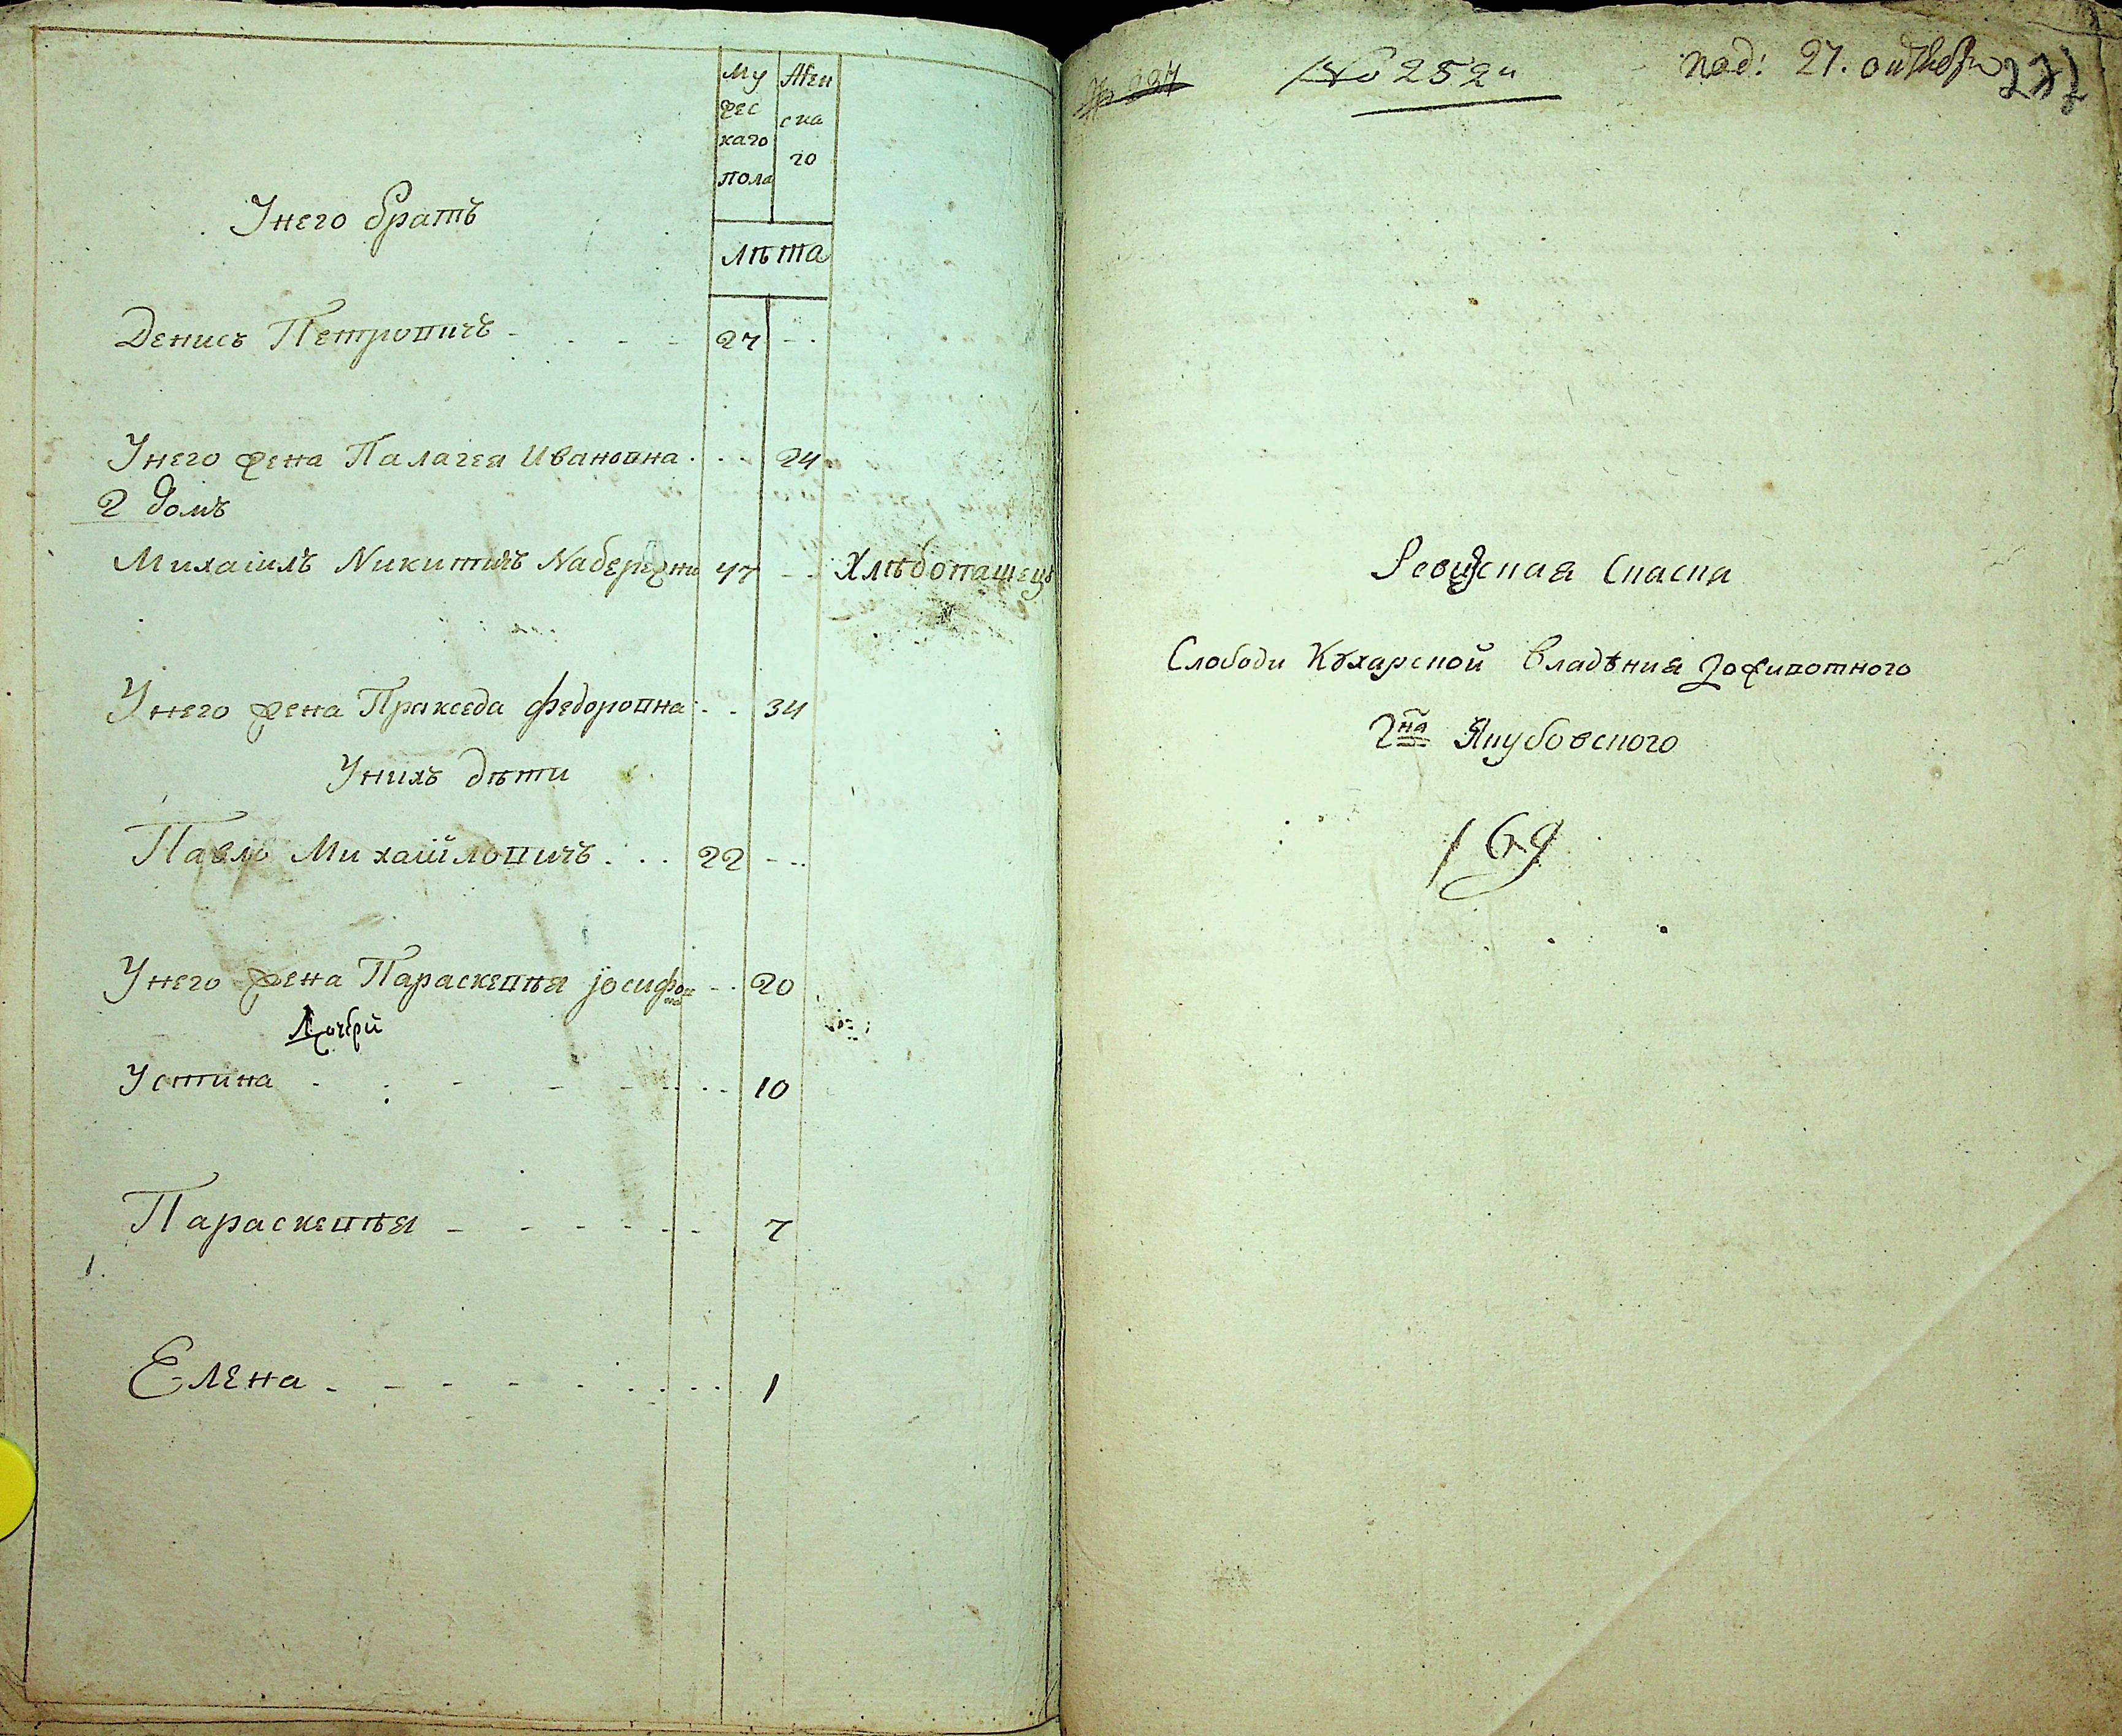 Му
жес
каго
пола
Жен
ска
го
лѣта
Унего братъ
Денисъ Петровичъ - - - - 27 - -
Унего жена Палагея Ивановна - - 24
2 домъ
Михаіилъ Никитичъ Набережни 47 - - Хлѣбопашецъ
Унего жена Пракседа федоровна - - 34
Унихъ дѣти
Павлъ Михаиіловичъ . . . 22 - - -
Унего жена Параскевѣя јосифов на - - 20
Дочери
Устина - - - - - - - 10
Параскевѣя - - - - - - 7
1.
Елена - - - - - - - - 1
№ 252й
под: 27. октебря
277
Ревижская Скаска
Слободи Кухарской владѣния зоживотного
Гна Якубовского
169